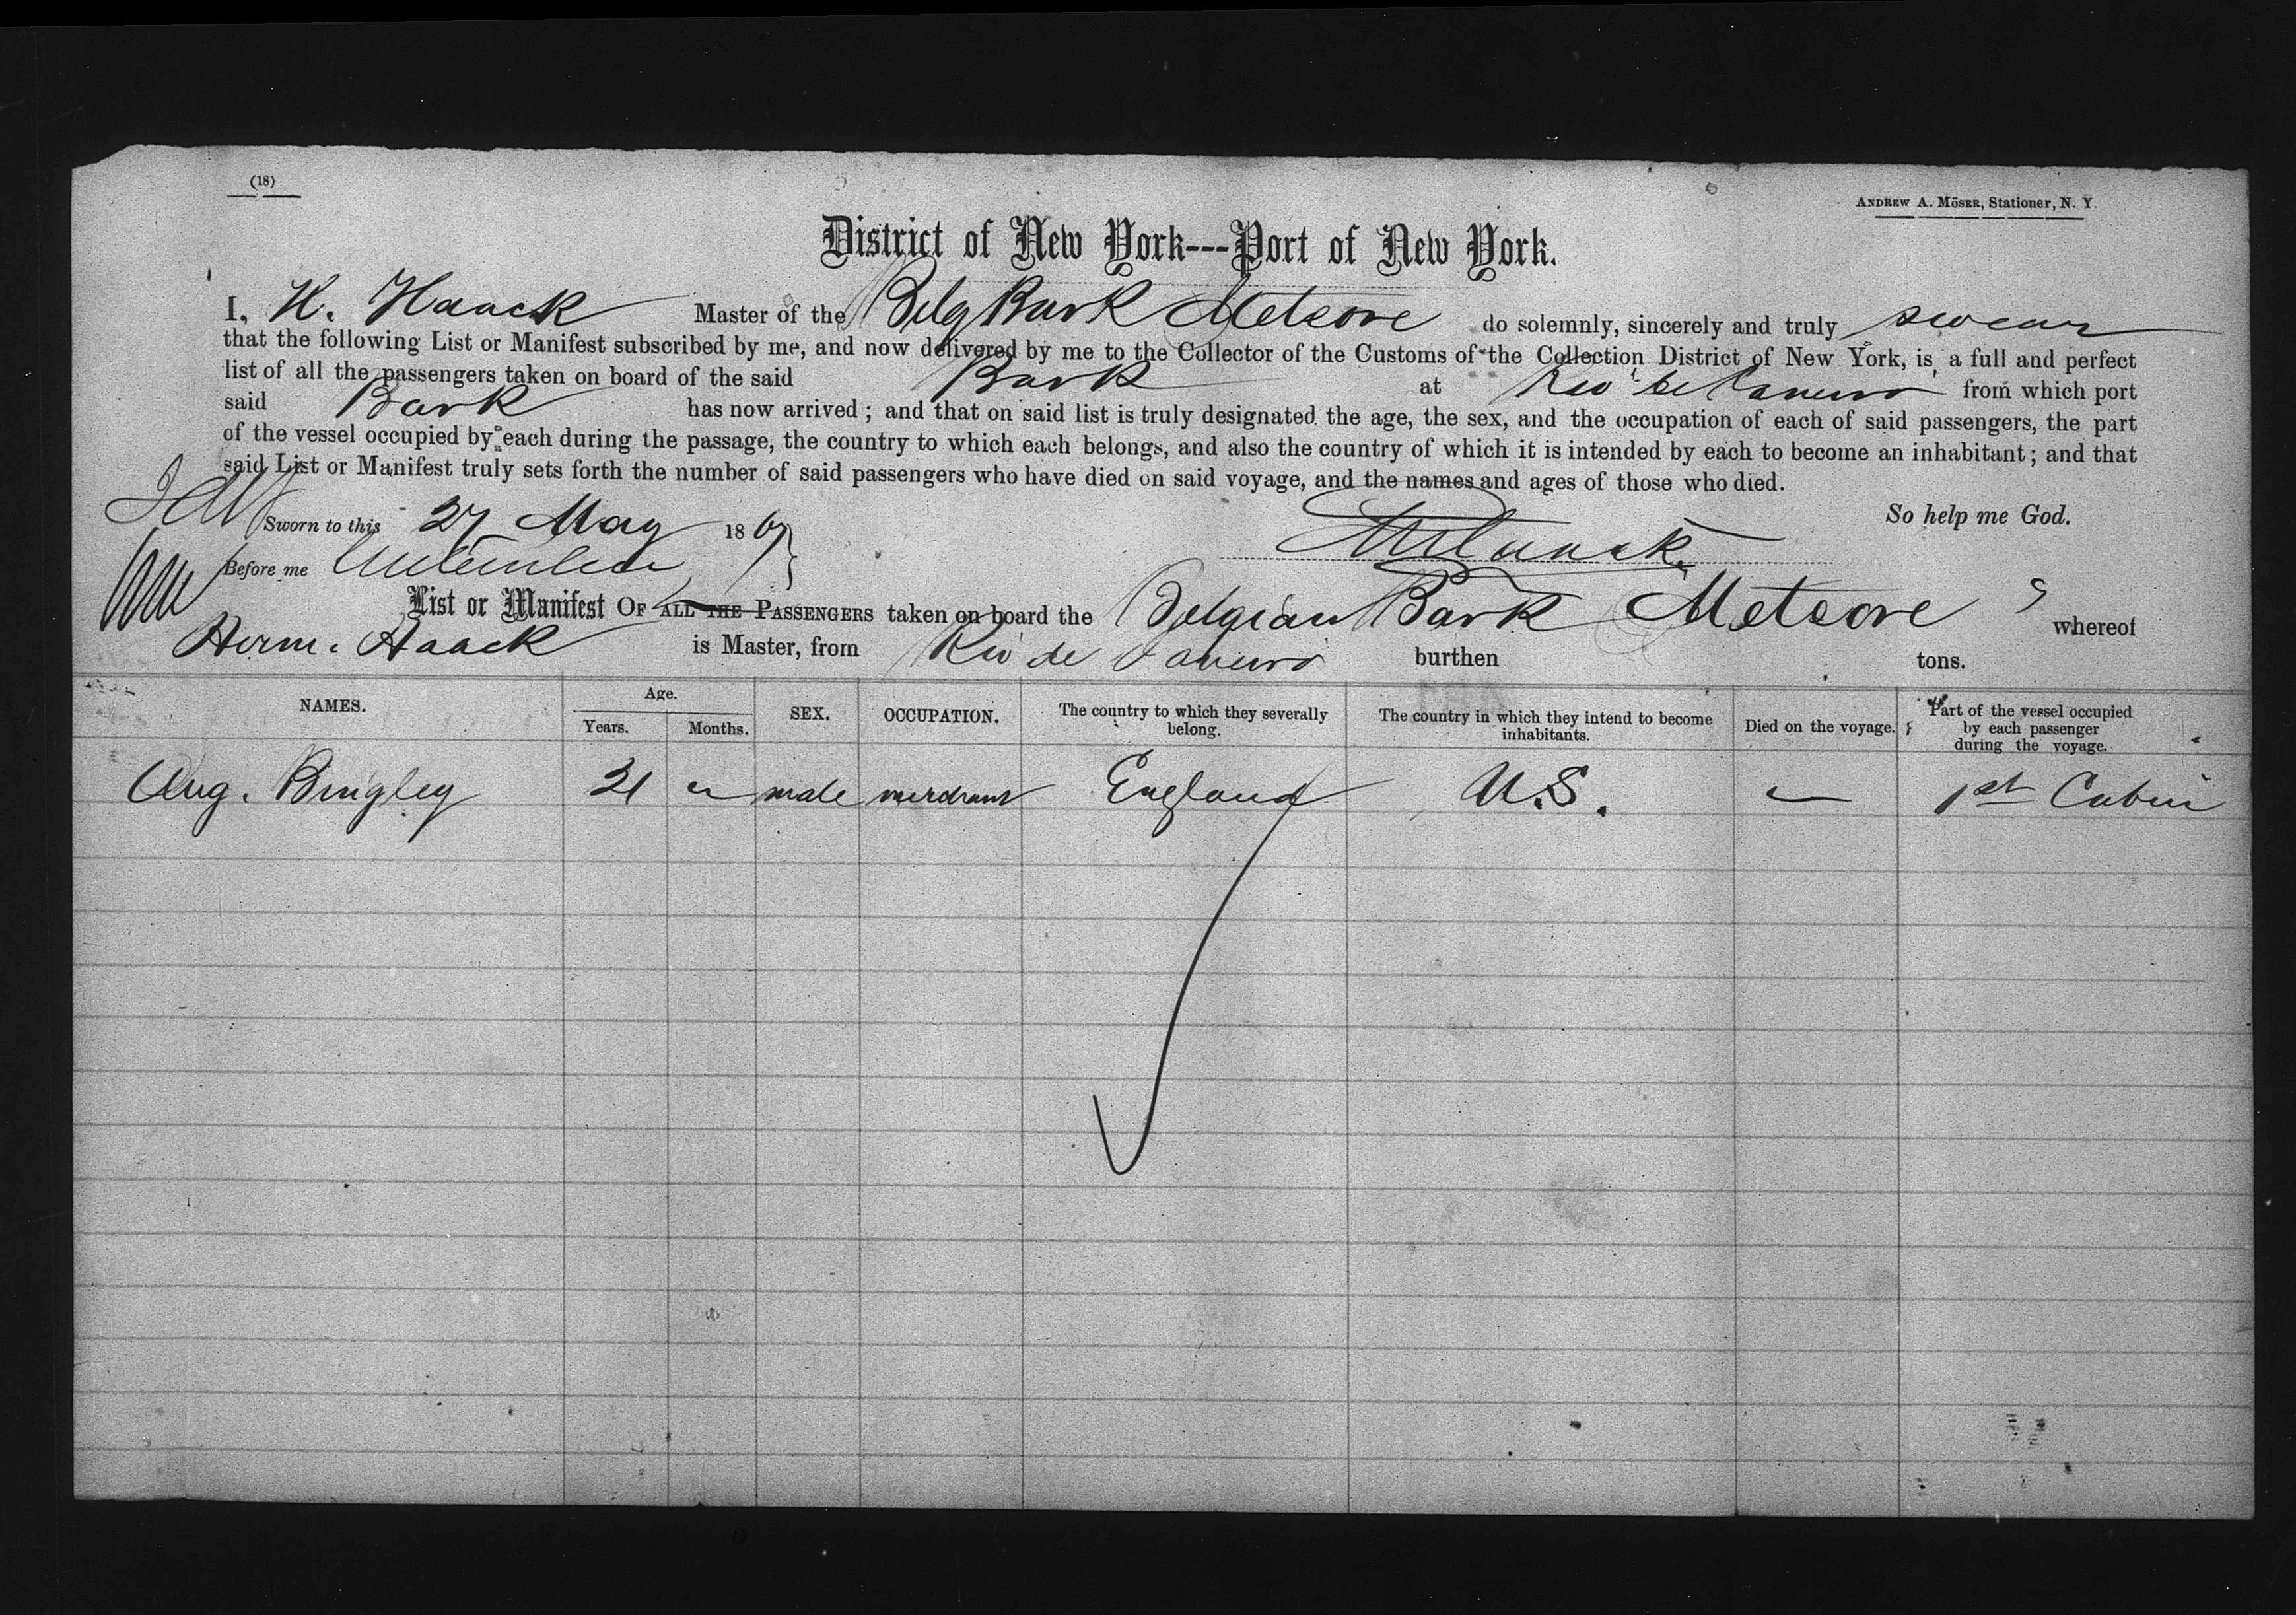 (18)
ANDREW A. MÖSER, Stationer, N. Y.
District of New York---Port of New York.
I, H. Haack Master of the Belg Bark Meteore do solemnly, sincerely and truly swear
that the following List or Manifest subscribed by me, and now delivered by me to the Collector of the Customs of the Collection District of New York, is, a full and perfect
list of all the passengers taken on board of the said Bark at Rio de Janeiro from which port
said Bark has now arrived; and that on said list is truly designated the age, the sex, and the occupation of each of said passengers, the part
of the vessel occupied by each during the passage, the country to which each belongs, and also the country of which it is intended by each to become an inhabitant; and that
said List or Manifest truly sets forth the number of said passengers who have died on said voyage, and the names and ages of those who died.
So help me God.
Sworn to this 27 May 1867
H Haack
Before me
List or Manifest OF ALL THE PASSENGERS taken on board the Belgian Bark Meteore whereof
Herm. Haack is Master, from Rio de Janeiro burthen tons.
NAMES. Age. Years. Months. SEX. OCCUPATION. The country to which they severally belong. The country in which they intend to become inhabitants. Died on the voyage. Part of the vessel occupied by each passenger during the voyage.
Aug. Bingley 31 male merchant England U.S. — 1st Cabin